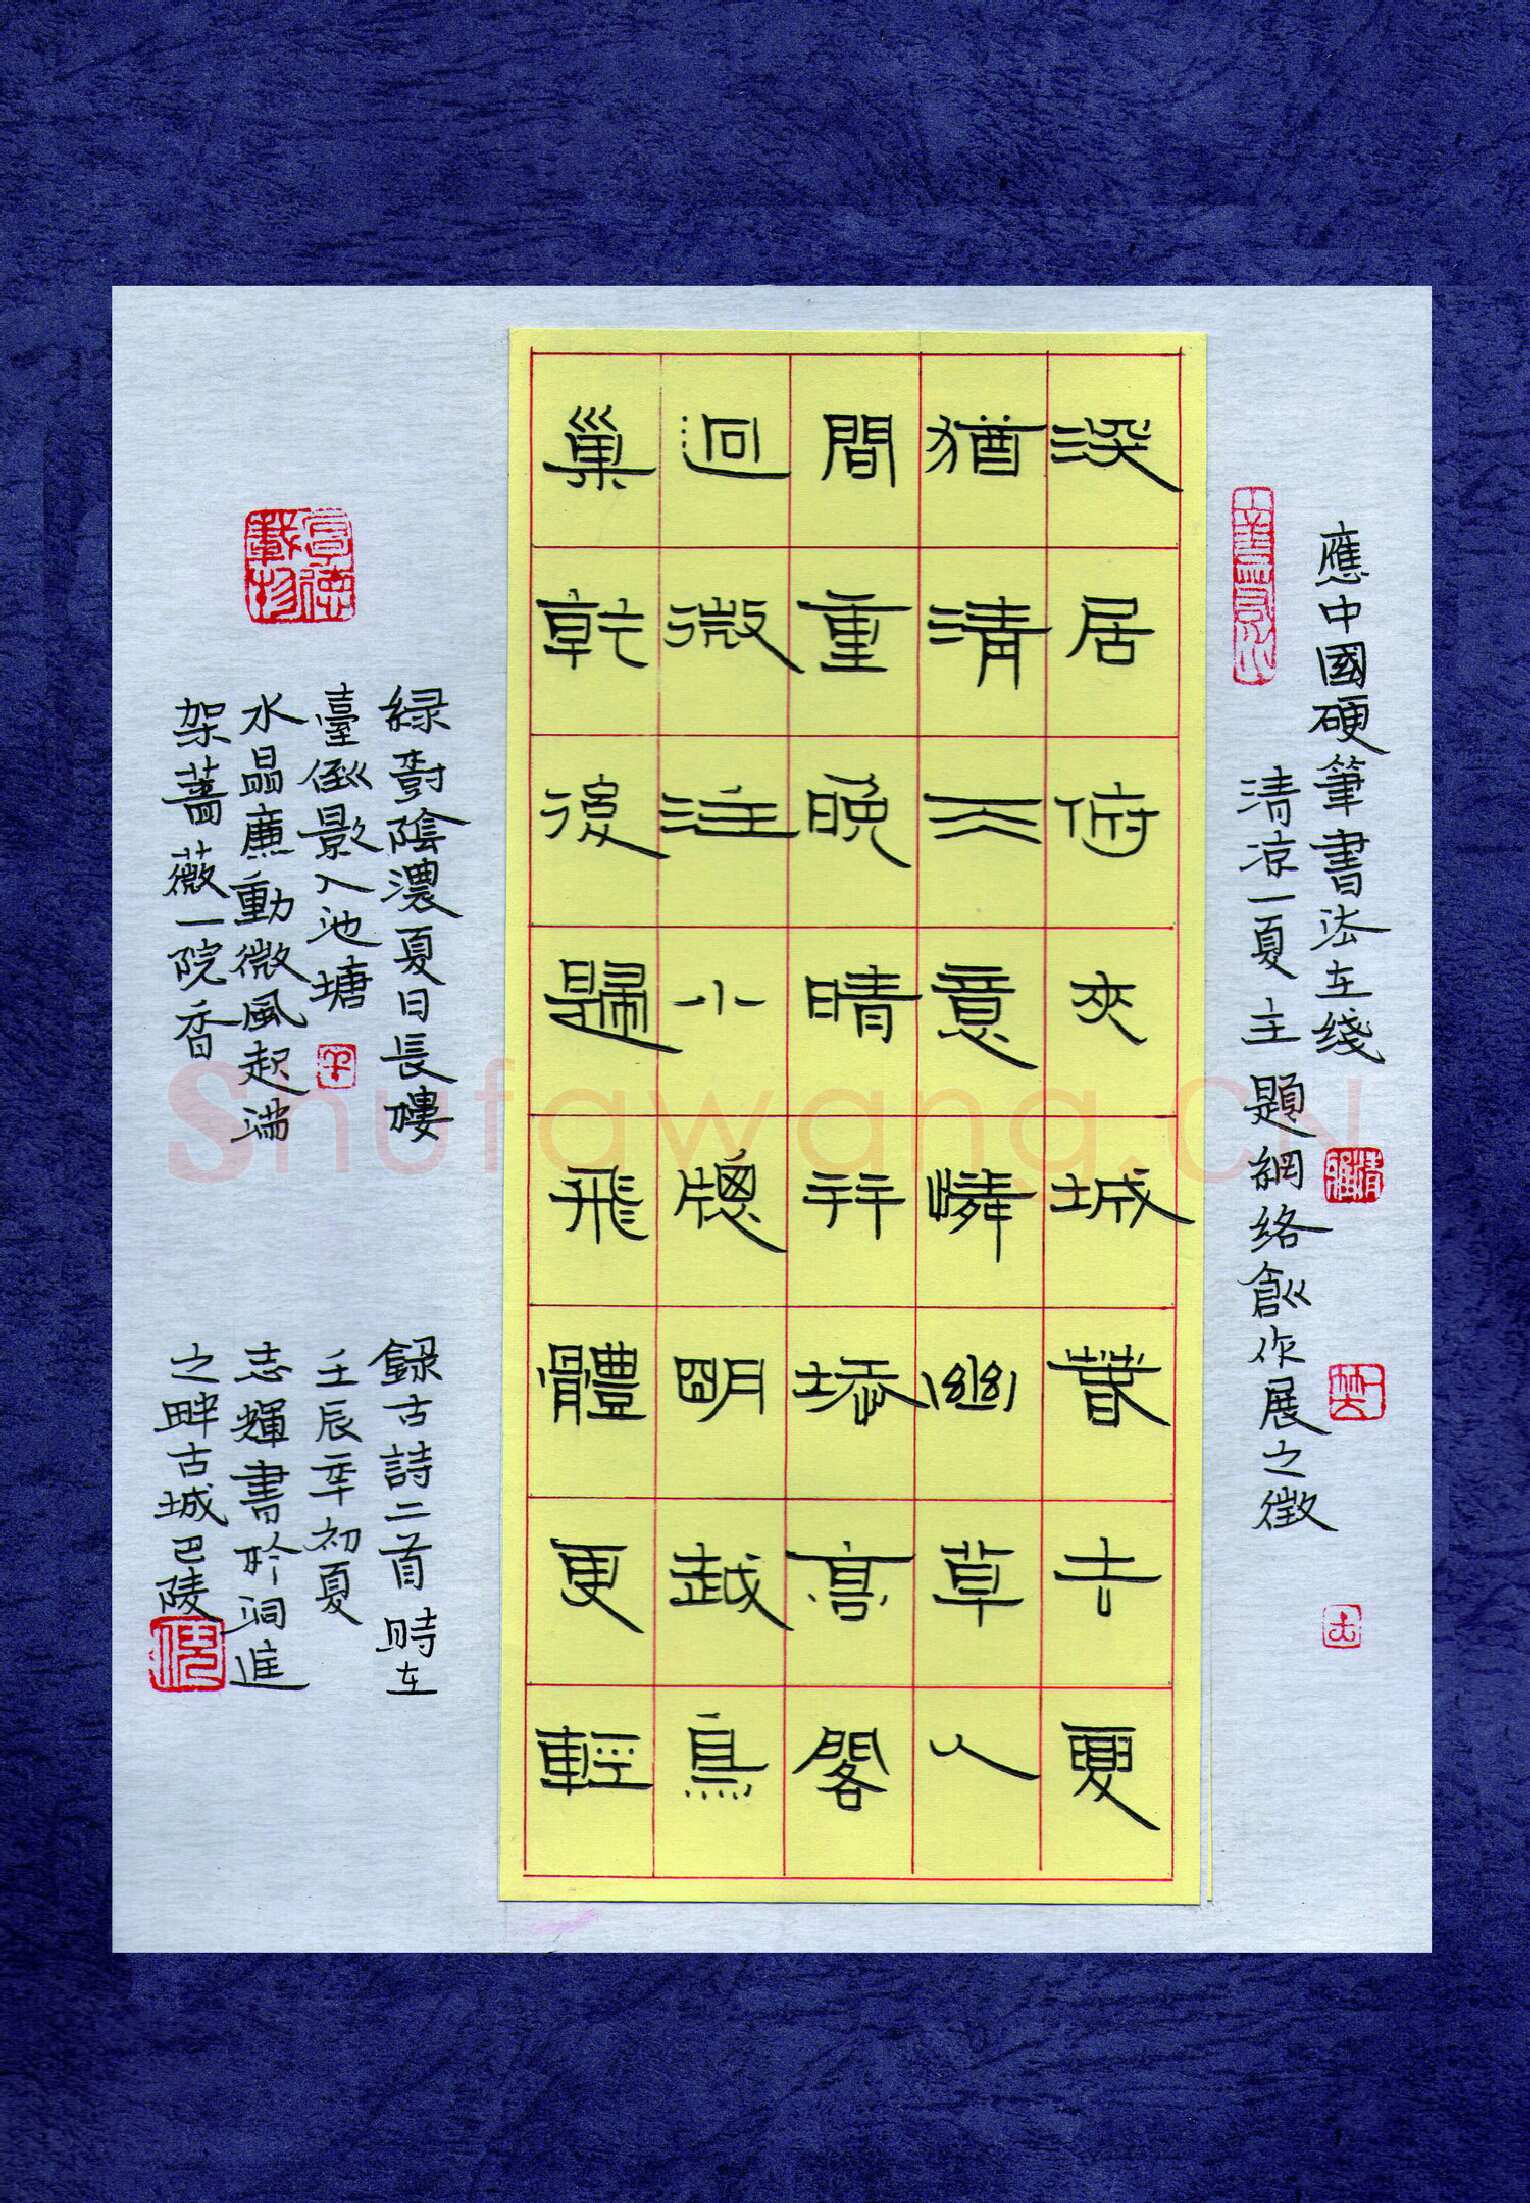 應中國硬筆書法在綫
清凉一夏主題網絡創作展之徵
深居俯夾城春去夏
猶清天意憐幽草人
間重晚晴并添高閣
迥微注小牕明越鳥
巢乾後歸飛體更輕
緑樹陰濃夏日長樓
臺倒影入池塘
水晶廉動微風起滿
架薔薇一院香
録古詩二首時在
壬辰年初夏
志輝書於洞庭
之畔古城巴陵
厚德載物
shufawang.CN